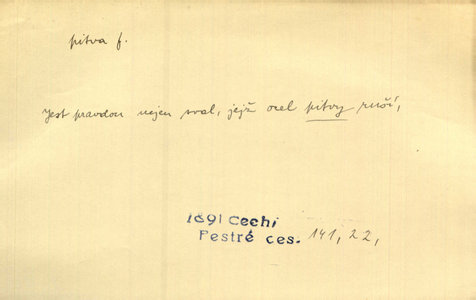 pitva f.
Jest pravdou nejen sval, jejž ocel pitvy ruší,
1891 Čech:
Pestré ces. 141, 22,